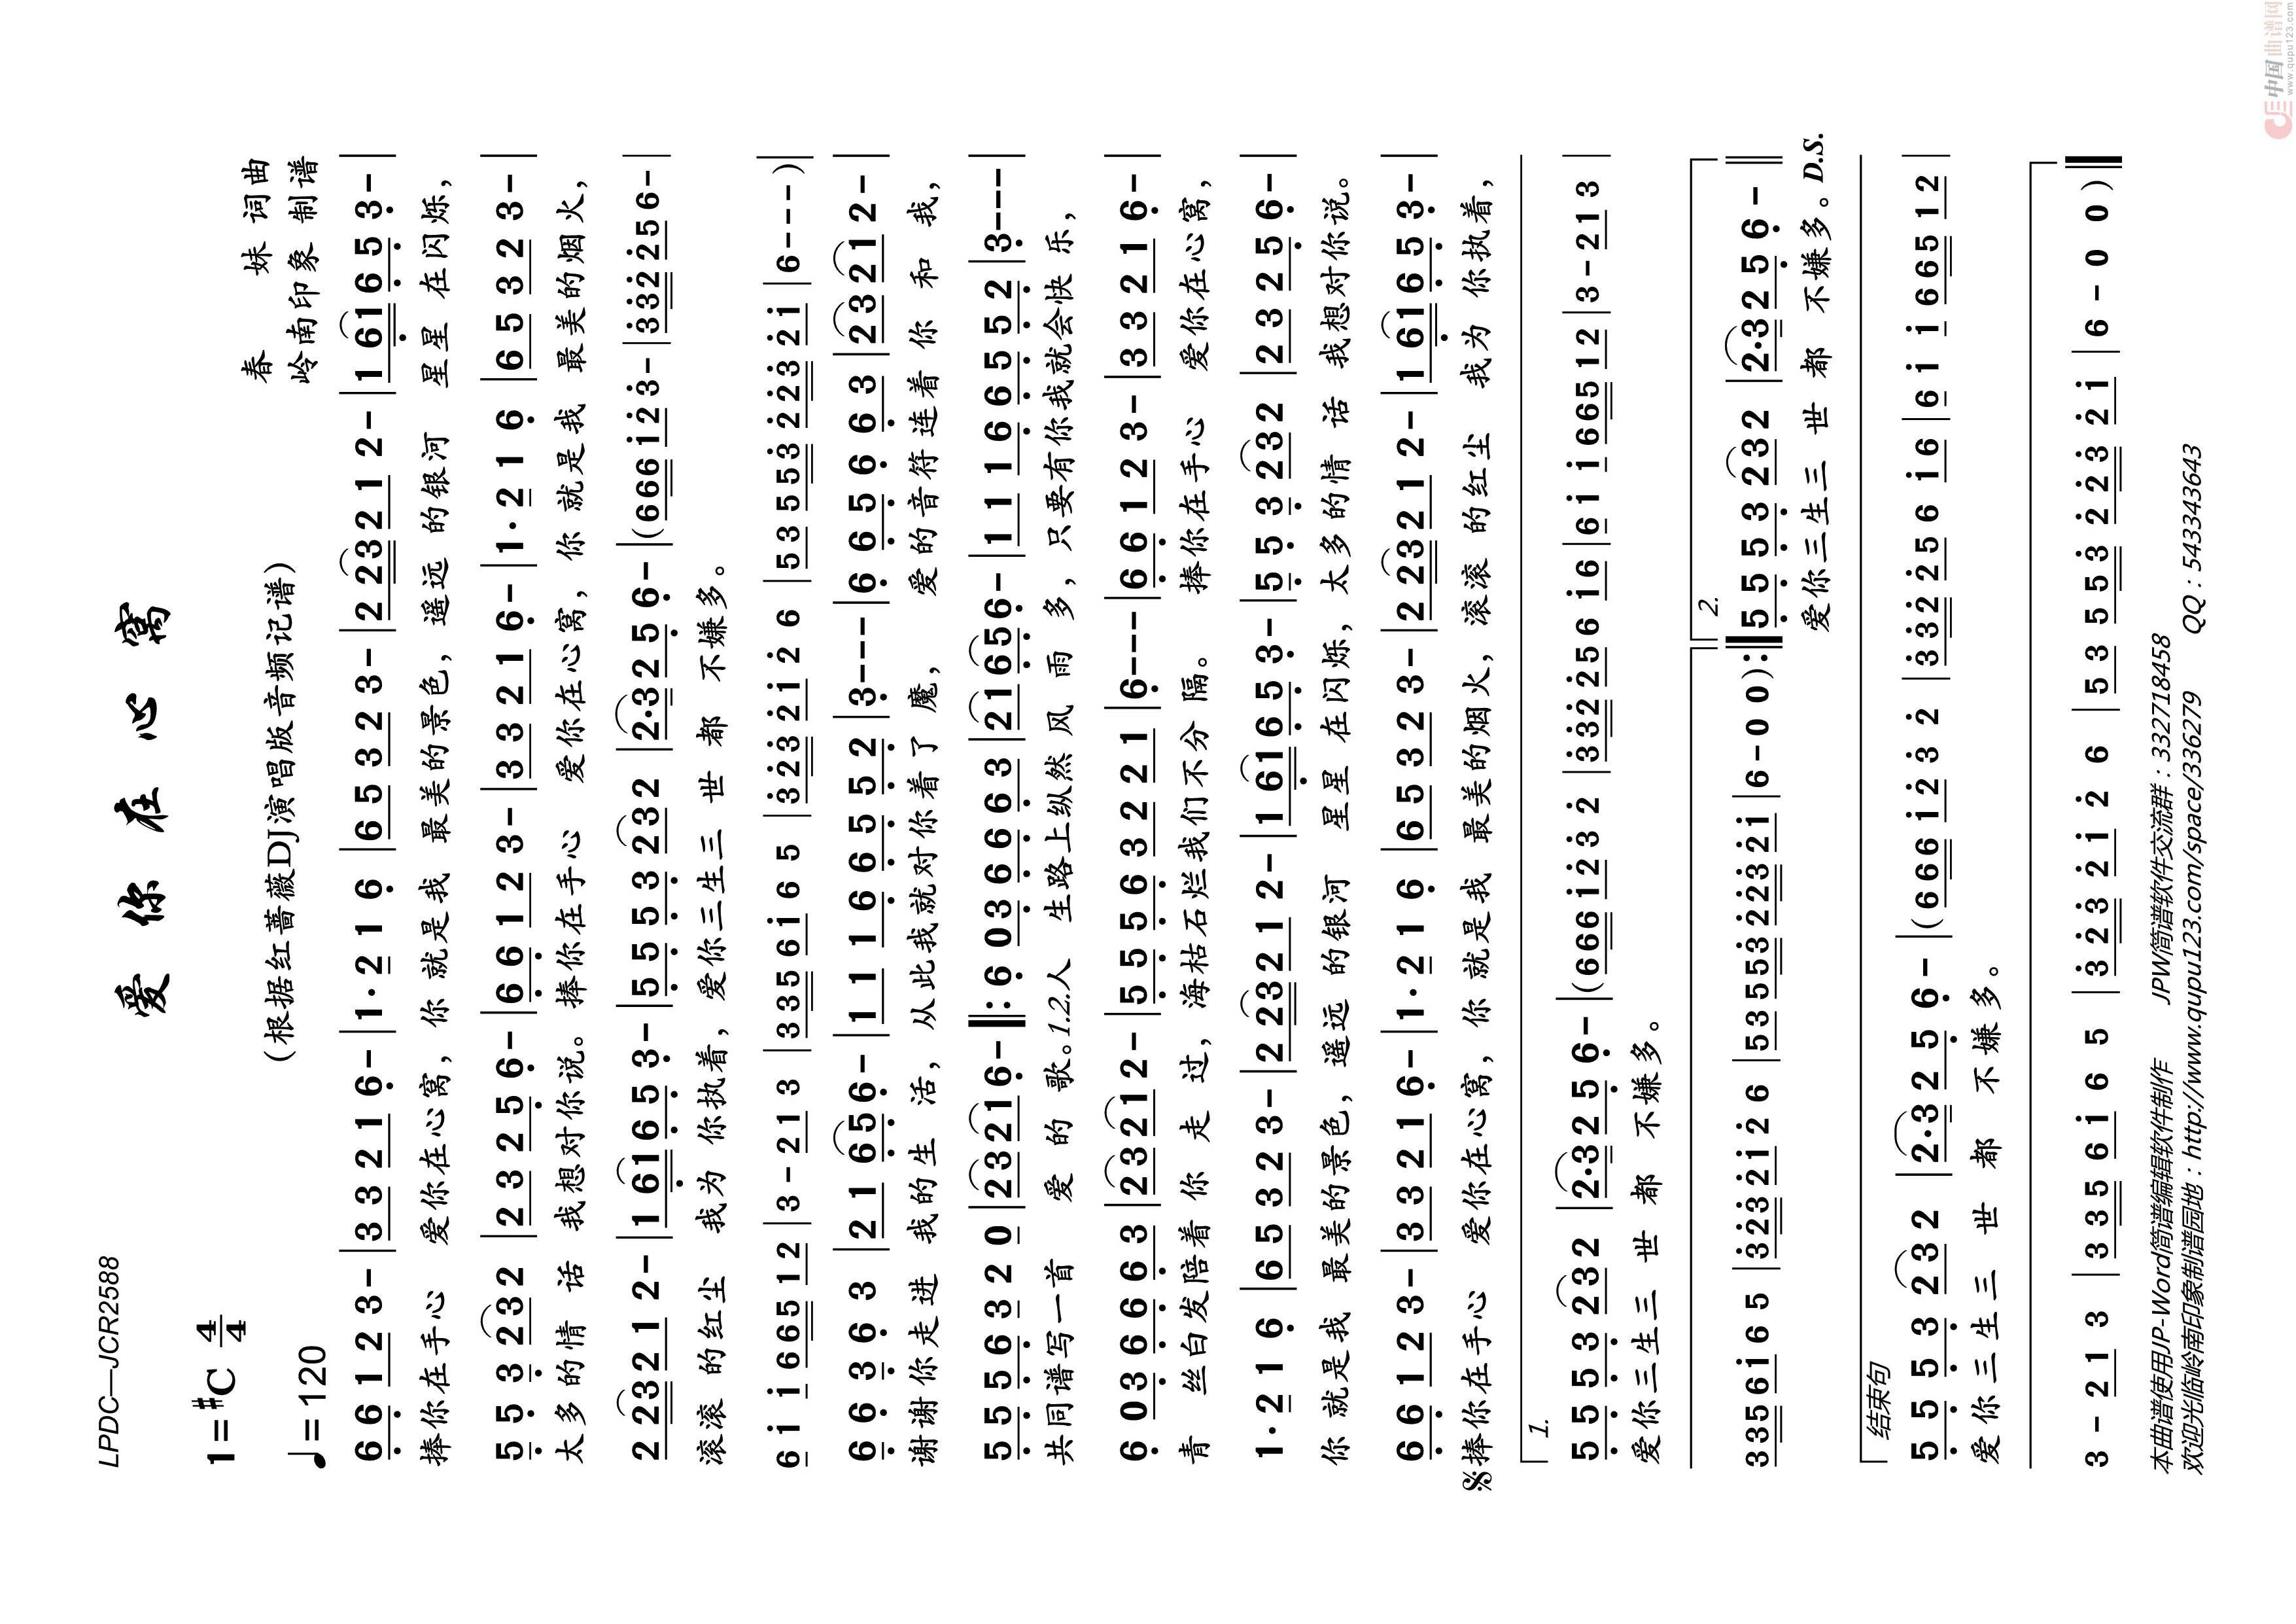 LPDC—JCR2588
爱你在心窝
1=♯C 4/4
(根据红蔷薇DJ演唱版音频记谱)
春 妹 词曲
岭南印象 制谱
♩=120
6 6 1 2 3 - | 3 3 2 1 6 - | 1 · 2 1 6 | 6 5 3 2 3 - | 2 2 3 2 1 2 - | 1 6 1 6 5 3 - |
捧你在手心 爱你在心窝, 你 就是我 最美的景色, 遥远 的银河 星星 在闪烁,
5 5 3 2 3 2 | 2 3 2 5 6 - | 6 6 1 2 3 - | 3 3 2 1 6 - | 1 · 2 1 6 | 6 5 3 2 3 - |
太多的情 话 我想对你说。捧你在手心 爱你在心窝, 你 就是我 最美的烟火,
2 2 3 2 1 2 - | 1 6 1 6 5 3 - | 5 5 5 3 2 3 2 | 2 · 3 2 5 6 - | (6 6 6 1 2 3 - | 3 3 2 2 5 6 -
滚滚 的红尘 我为 你执着, 爱你三生三 世 都 不嫌多。
6 1 1 6 6 5 1 2 | 3 - 2 1 3 | 3 3 5 6 1 6 5 | 3 2 3 2 1 2 6 | 5 3 5 5 3 2 2 3 2 1 | 6 - - - ) |
6 6 3 6 3 | 2 1 6 5 6 - | 1 1 1 6 6 5 5 2 | 3 - - - | 6 6 5 6 6 3 | 2 3 2 1 2 - |
谢谢你走进 我的生 活, 从此我就对你着了 魔, 爱的音符连着 你 和 我,
5 5 5 6 3 2 0 | 2 3 2 1 6 - ‖: 6 0 3 6 6 6 3 | 2 1 6 5 6 - | 1 1 1 6 6 5 5 2 | 3 - - -
共同谱写一首 爱 的 歌。1.2.人 生路上纵然 风 雨 多, 只要有你我就会快 乐,
6 0 3 6 6 6 3 | 2 3 2 1 2 - | 5 5 5 6 3 2 2 1 | 6 - - - | 6 6 1 2 3 - | 3 3 2 1 6 - |
青 丝白发陪着 你 走 过, 海枯石烂我们不分 隔。 捧你在手心 爱你在心窝,
1 · 2 1 6 | 6 5 3 2 3 - | 2 2 3 2 1 2 - | 1 6 1 6 5 3 - | 5 5 3 2 3 2 | 2 3 2 5 6 - |
你 就是我 最美的景色, 遥远 的银河 星星 在闪烁, 太多的情 话 我想对你说。
6 6 1 2 3 - | 3 3 2 1 6 - | 1 · 2 1 6 | 6 5 3 2 3 - | 2 2 3 2 1 2 - | 1 6 1 6 5 3 - |
𝄋捧你在手心 爱你在心窝, 你 就是我 最美的烟火, 滚滚 的红尘 我为 你执着,
1.
5 5 5 3 2 3 2 | 2 · 3 2 5 6 - | (6 6 6 1 2 3 2 | 3 3 2 2 5 6 1 6 | 6 1 1 6 6 5 1 2 | 3 - 2 1 3 |
爱你三生三 世 都 不嫌多。
2.
3 3 5 6 1 6 5 | 3 2 3 2 1 2 6 | 5 3 5 5 3 2 2 3 2 1 | 6 - 0 0 ) :‖ 5 5 5 3 2 3 2 | 2 · 3 2 5 6 - ‖
爱你三生三 世 都 不嫌多。D.S.
结束句
5 5 5 3 2 3 2 | 2 · 3 2 5 6 - | (6 6 6 1 2 3 2 | 3 3 2 2 5 6 1 6 | 6 1 1 6 6 5 1 2 |
爱你三生三 世 都 不嫌多。
3 - 2 1 3 | 3 3 5 6 1 6 5 | 3 2 3 2 1 2 6 | 5 3 5 5 3 2 2 3 2 1 | 6 - 0 0 ) ‖
本曲谱使用JP-Word简谱编辑软件制作 JPW简谱软件交流群:332718458
欢迎光临岭南印象制谱园地:http://www.qupu123.com/space/336279 QQ:543343643
中国曲谱网
www.qupu123.com